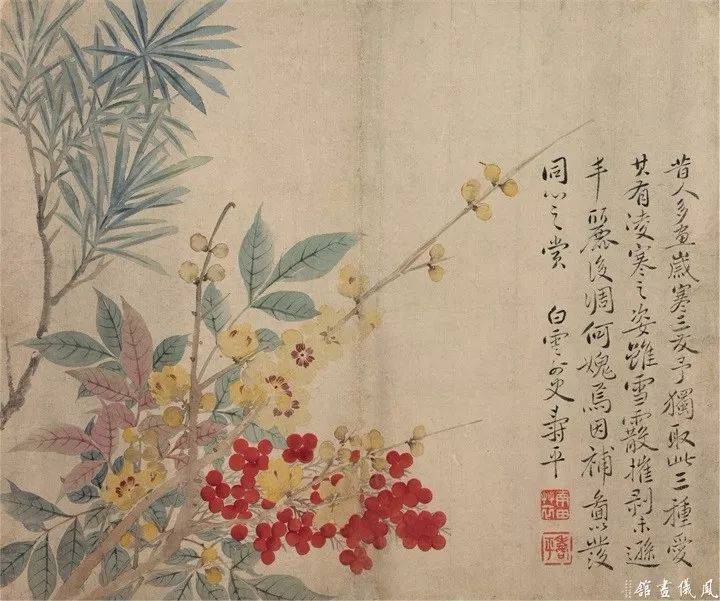 昔人多畫歲寒三友予獨取此三種愛
其有凌寒之姿雖雪霰摧剥未遜
丰麗後凋何媿焉因補圖以發
同心之賞 白雲外史壽平
南田草衣
壽平
鳳儀畫舘